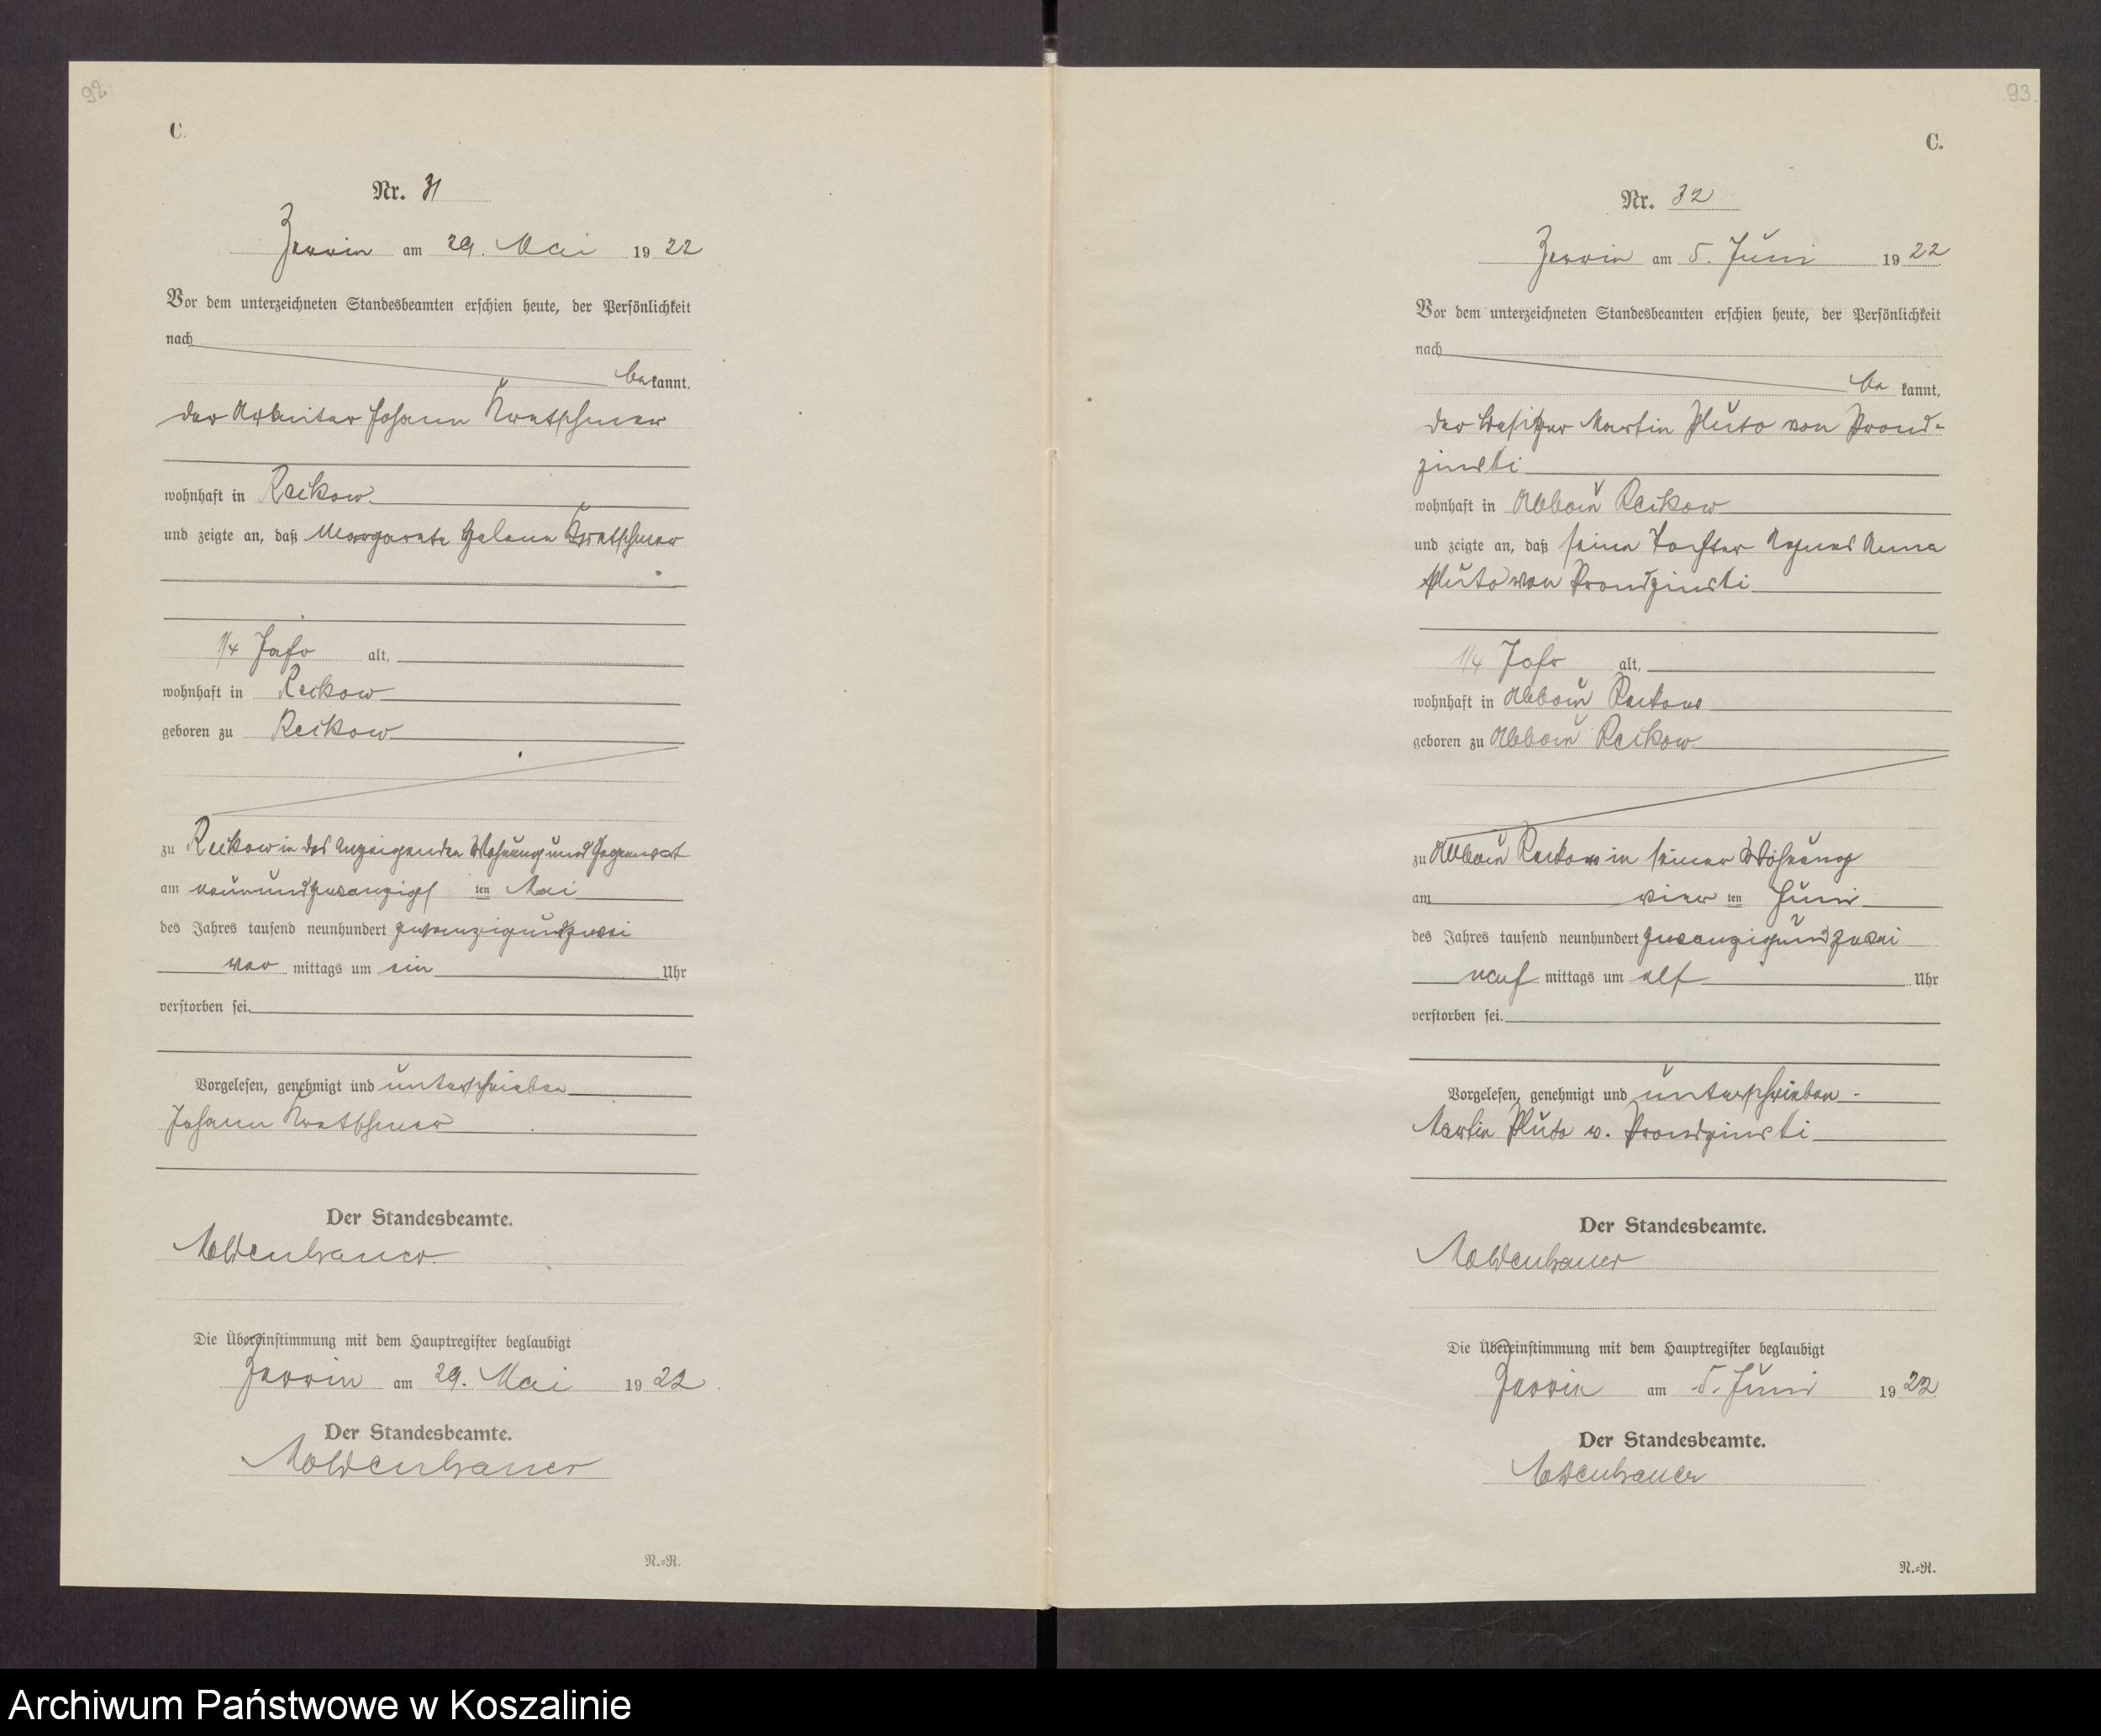 92.
C.
Nr. 31
Zerrin am 29. Mai 1922
Vor dem unterzeichneten Standesbeamten erschien heute, der Persönlichkeit
nach
bekannt,
der Arbeiter Johann Kretschmer
wohnhaft in Reckow
und zeigte an, daß Margarete Helene Kretschmer
1/4 Jahr alt,
wohnhaft in Reckow
geboren zu Reckow
zu Reckow in des Anzeigenden Wohnung und Gegenwart
am neunundzwanzigsten Mai
des Jahres tausend neunhundert zwanzigundzwei
vor mittags um ein Uhr
verstorben sei.
Vorgelesen, genehmigt und unterschrieben
Johann Kretschmer
Der Standesbeamte.
Moldenhauer
Die Übereinstimmung mit dem Hauptregister beglaubigt
Zerrin am 29. Mai 1922
Der Standesbeamte.
Moldenhauer
N.=R.
93.
C.
Nr. 32
Zerrin am 5. Juni 1922
Vor dem unterzeichneten Standesbeamten erschien heute, der Persönlichkeit
nach
be kannt,
der Besitzer Martin Pluto von Prond-
zinski
wohnhaft in Abbau Reckow
und zeigte an, daß seine Tochter Agnes Anna
Pluto von Prondzinski
1/4 Jahr alt,
wohnhaft in Abbau Reckow
geboren zu Abbau Reckow
zu Abbau Reckow in seiner Wohnung
am vier ten Juni
des Jahres tausend neunhundert zwanzigundzwei
nach mittags um elf Uhr
verstorben sei.
Vorgelesen, genehmigt und unterschrieben -
Martin Pluto v. Prondzinski
Der Standesbeamte.
Moldenhauer
Die Übereinstimmung mit dem Hauptregister beglaubigt
Zerrin am 5. Juni 1922
Der Standesbeamte.
Moldenhauer
N.=R.
Archiwum Państwowe w Koszalinie